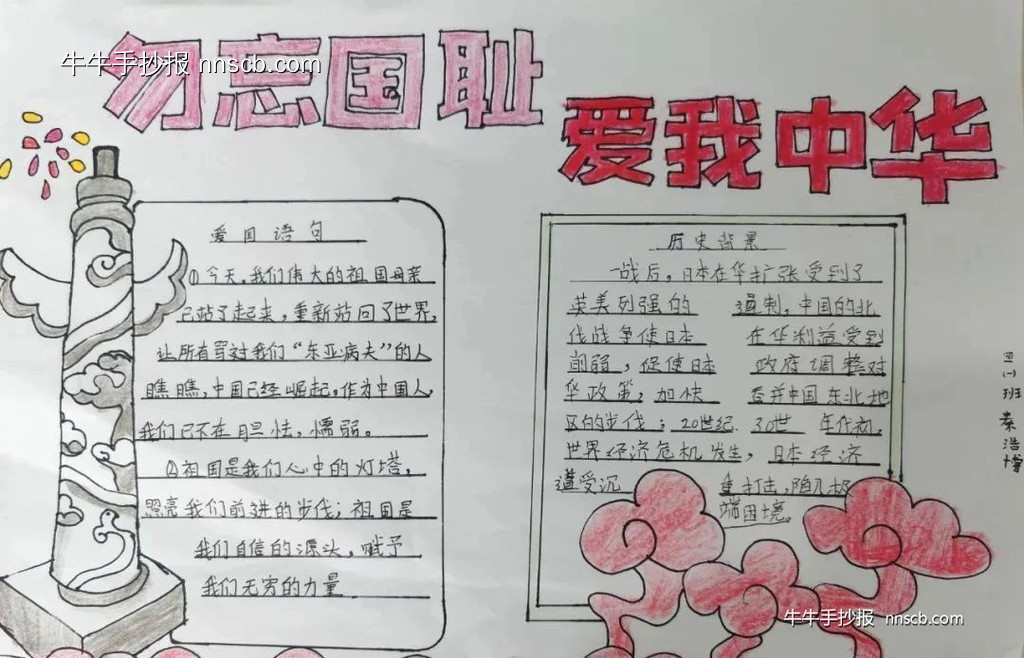 勿忘国耻
牛牛手抄报 nnscb.com
爱我中华
爱国语句
①今天,我们伟大的祖国母亲
已站了起来,重新站回了世界,
让所有骂对我们“东亚病夫”的人
瞧瞧,中国已经崛起,作为中国人,
我们已不在胆怯,懦弱。
②祖国是我们心中的灯塔,
照亮我们前进的步伐;祖国是
我们自信的源头,赋予
我们无穷的力量
历史背景
一战后,日本在华扩张受到了
英美列强的 遏制,中国的北
伐战争使日本 在华利益受到
削弱,促使日本 政府调整对
华政策,加快 吞并中国东北地
区的步伐;20世纪 30世 年代初,
世界经济危机发生,日本经济
遭受沉 重打击,陷入极
端困境。
四(一)班 秦浩博
牛牛手抄报 nnscb.com